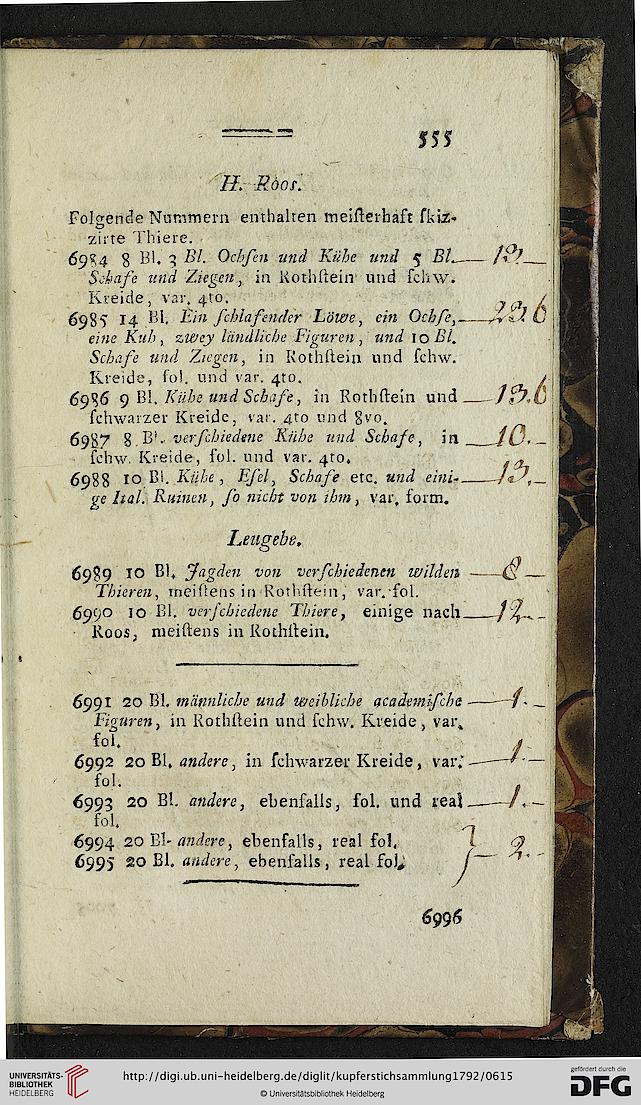 555
H. Roos.
Folgende Nummern enthalten meiſterhaft ſkiz-
zirte Thiere.
6984 8 Bl. 3 Bl. Ochſen und Kühe und 5 Bl.
Schafe und Ziegen, in Rothſtein und ſchw.
Kreide, var. 4to.
6985 14 Bl. Ein ſchlafender Löwe, ein Ochſe, 23. 6
eine Kuh, zwey ländliche Figuren, und 10 Bl.
Schafe und Ziegen, in Rothſtein und ſchw.
Kreide, fol. und var. 4to.
6986 9 Bl. Kühe und Schafe, in Rothſtein und 13. 6
ſchwarzer Kreide, var. 4to und 8vo.
6987 8 Bl. verſchiedene Kühe und Schafe, in 10. -
ſchw. Kreide, fol. und var. 4to.
6988 10 Bl. Kühe, Eſel, Schafe etc. und eini- 13. -
ge Ital. Ruinen, ſo nicht von ihm, var. form.
Leugebe.
6989 10 Bl. Jagden von verſchiedenen wilden 8 -
Thieren, meiſtens in Rothſtein, var. fol.
6990 10 Bl. verſchiedene Thiere, einige nach 12. -
Roos, meiſtens in Rothſtein.
6991 20 Bl. männliche und weibliche academiſche 1. -
Figuren, in Rothſtein und ſchw. Kreide, var.
fol.
6992 20 Bl. andere, in ſchwarzer Kreide, var. 1. -
fol.
6993 20 Bl. andere, ebenfalls, fol. und real 1. -
fol.
6994 20 Bl. andere, ebenfalls, real fol.
6995 20 Bl. andere, ebenfalls, real fol. } - 2. -
6996
UNIVERSITÄTS-
BIBLIOTHEK
HEIDELBERG
http://digi.ub.uni-heidelberg.de/diglit/kupferstichsammlung1792/0615
© Universitätsbibliothek Heidelberg
gefördert durch die
DFG